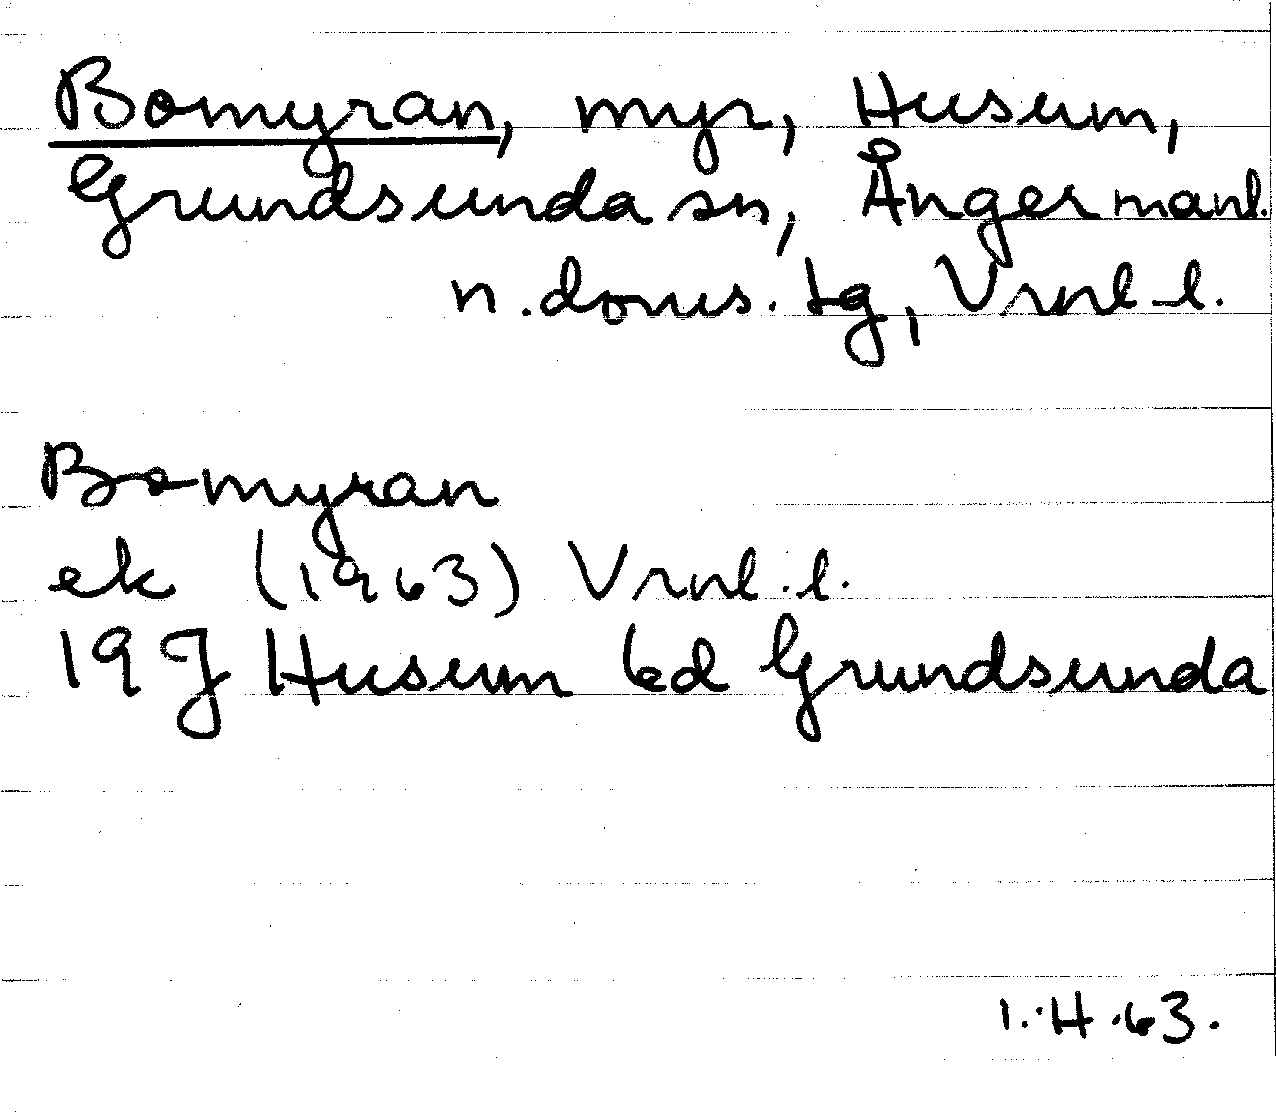 Bomyran, myr, Husum,
Grundsunda sn, Ångermanl.
n. doms. tg, Vrnl l.
Bomyran
ek (1963) Vrnl. l.
19 J Husum 6d Grundsunda
I.H.63.